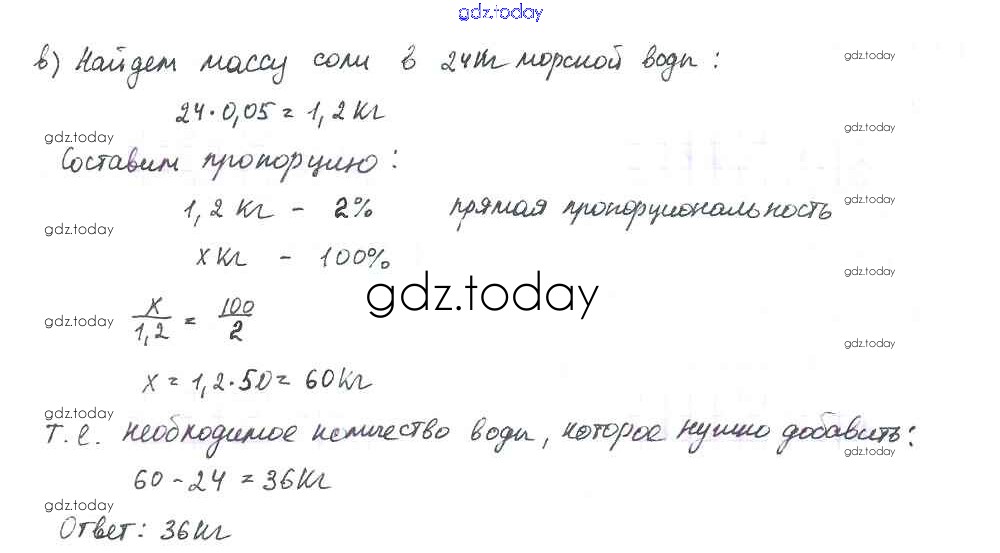 gdz.today
в) Найдем массу соли в 24кг морской воды: gdz.today
24·0,05 = 1,2 кг
gdz.today gdz.today
Составим пропорцию:
1,2 кг - 2% прямая пропорциональность gdz.today
gdz.today
x кг - 100%
gdz.today
gdz.today
gdz.today x/1,2 = 100/2
gdz.today
x = 1,2·50 = 60кг
gdz.today
т.е. необходимое количество воды, которое нужно добавить:
gdz.today
60-24 = 36кг
gdz.today gdz.today
Ответ: 36кг